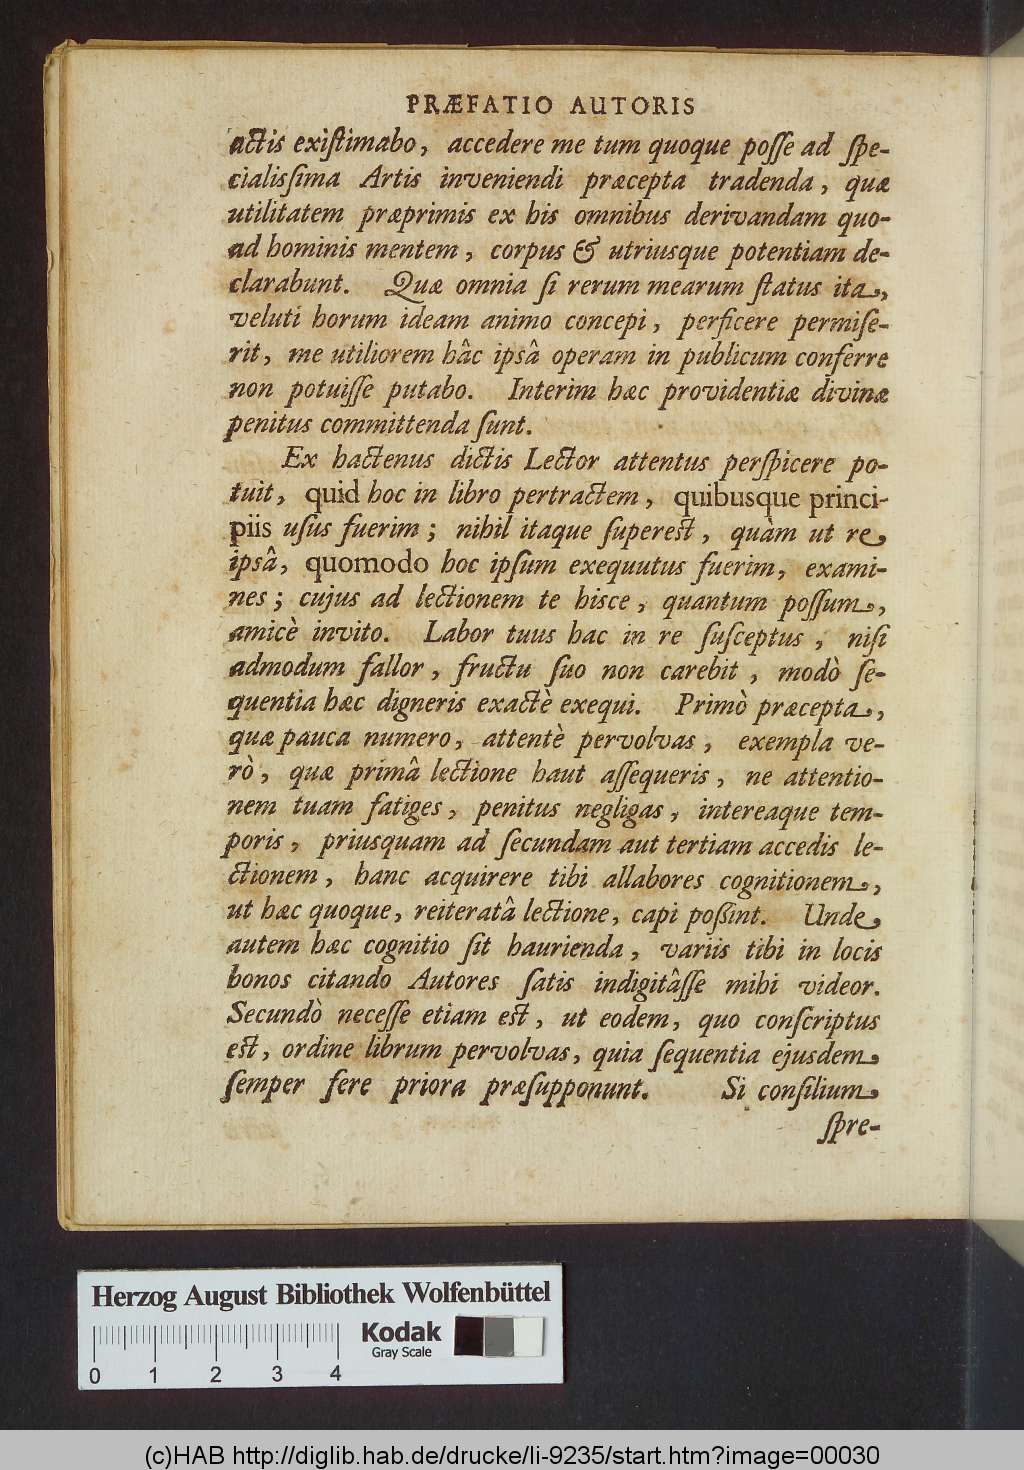 PRÆFATIO AUTORIS
actis exiſtimabo, accedere me tum quoque poſſe ad ſpe-
cialisſima Artis inveniendi præcepta tradenda, quæ
utilitatem præprimis ex his omnibus derivandam quo-
ad hominis mentem, corpus & utriusque potentiam de-
clarabunt. Quæ omnia ſi rerum mearum ſtatus ita,
veluti horum ideam animo concepi, perficere permiſe-
rit, me utiliorem hâc ipsâ operam in publicum conferre
non potuiſſe putabo. Interim hæc providentiæ divinæ
penitus committenda ſunt.
Ex hactenus dictis Lector attentus perſpicere po-
tuit, quid hoc in libro pertractem, quibusque princi-
piis uſus fuerim; nihil itaque ſupereſt, quàm ut re
ipsâ, quomodo hoc ipſum exequutus fuerim, exami-
nes; cujus ad lectionem te hisce, quantum poſſum,
amicè invito. Labor tuus hac in re ſuſceptus, niſi
admodum fallor, fructu ſuo non carebit, modò ſe-
quentia hæc digneris exactè exequi. Primò præcepta,
quæ pauca numero, attentè pervolvas, exempla ve-
rò, quæ primâ lectione haut aſſequeris, ne attentio-
nem tuam fatiges, penitus negligas, intereaque tem-
poris, priusquam ad ſecundam aut tertiam accedis le-
ctionem, hanc acquirere tibi allabores cognitionem,
ut hæc quoque, reiteratâ lectione, capi poßint. Unde
autem hæc cognitio ſit haurienda, variis tibi in locis
bonos citando Autores ſatis indigitâſſe mihi videor.
Secundò neceſſe etiam eſt, ut eodem, quo conſcriptus
eſt, ordine librum pervolvas, quia ſequentia ejusdem
ſemper fere priora præſupponunt. Si conſilium
ſpre-
Herzog August Bibliothek Wolfenbüttel
Kodak
Gray Scale
0 1 2 3 4
(c)HAB http://diglib.hab.de/drucke/li-9235/start.htm?image=00030